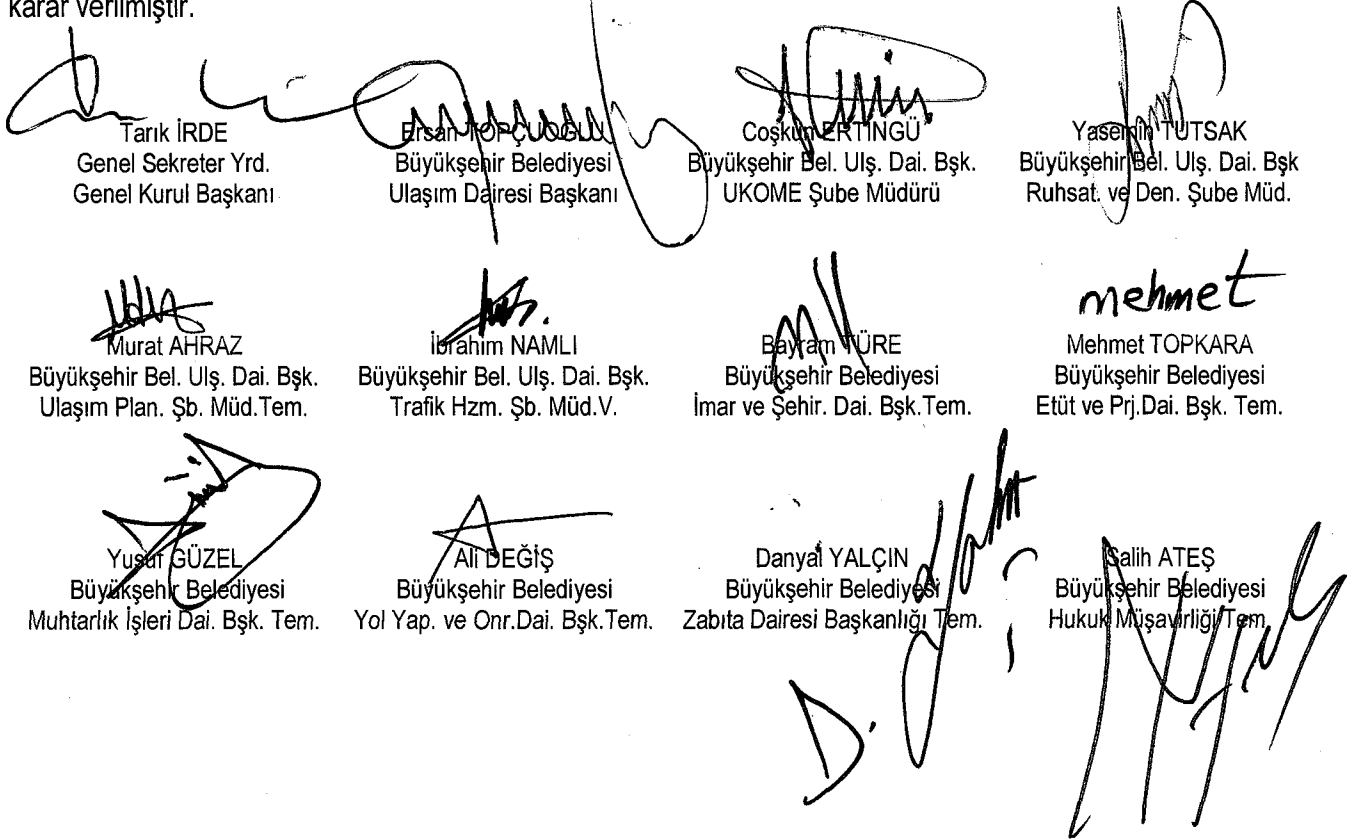 karar verilmiştir.
Tarık İRDE
Genel Sekreter Yrd.
Genel Kurul Başkanı
Ersan TOPÇUOĞLU
Büyükşehir Belediyesi
Ulaşım Dairesi Başkanı
Coşkun ERTİNGÜ
Büyükşehir Bel. Ulş. Dai. Bşk.
UKOME Şube Müdürü
Yasemin TUTSAK
Büyükşehir Bel. Ulş. Dai. Bşk
Ruhsat. ve Den. Şube Müd.
Murat AHRAZ
Büyükşehir Bel. Ulş. Dai. Bşk.
Ulaşım Plan. Şb. Müd.Tem.
İbrahim NAMLI
Büyükşehir Bel. Ulş. Dai. Bşk.
Trafik Hzm. Şb. Müd.V.
Bayram TÜRE
Büyükşehir Belediyesi
İmar ve Şehir. Dai. Bşk.Tem.
mehmet
Mehmet TOPKARA
Büyükşehir Belediyesi
Etüt ve Prj.Dai. Bşk. Tem.
Yusuf GÜZEL
Büyükşehir Belediyesi
Muhtarlık İşleri Dai. Bşk. Tem.
Ali DEĞİŞ
Büyükşehir Belediyesi
Yol Yap. ve Onr.Dai. Bşk.Tem.
Danyal YALÇIN
Büyükşehir Belediyesi
Zabıta Dairesi Başkanlığı Tem.
D.
Salih ATEŞ
Büyükşehir Belediyesi
Hukuk Müşavirliği Tem.